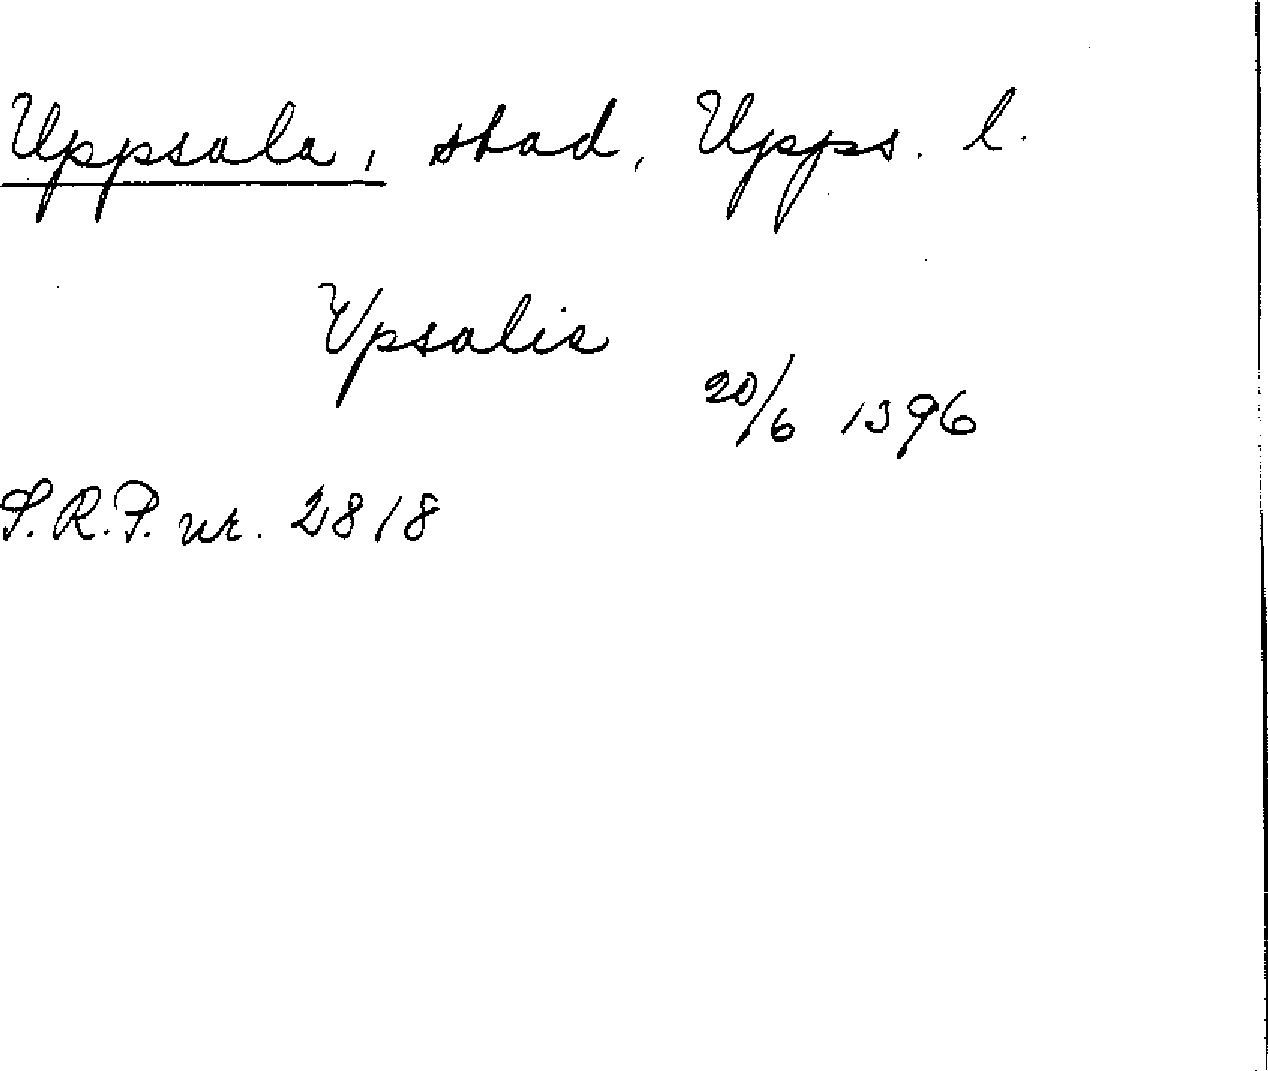 Uppsala, stad, Upps. l.
Vpsalis
20/6 1396
S.R.P. nr. 2818